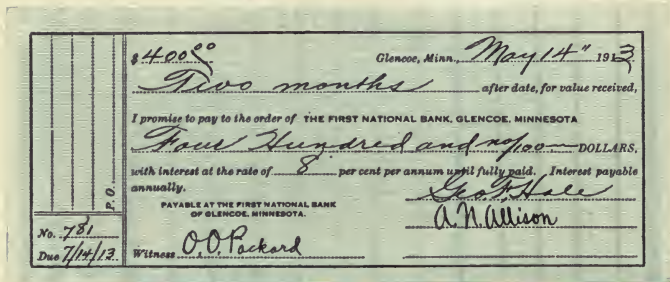 $400.00 Glencoe, Minn., May 14" 1913
Two months after date, for value received,
I promise to pay to the order of THE FIRST NATIONAL BANK, GLENCOE, MINNESOTA
Four Hundred and no/100 DOLLARS,
with interest at the rate of 8 per cent per annum until fully paid. Interest payable
annually.
Geo F Hale
PAYABLE AT THE FIRST NATIONAL BANK
OF GLENCOE, MINNESOTA.
A. N. Allison
P. O.
No. 781
Due 7/14/13
Witness O. O. Packard